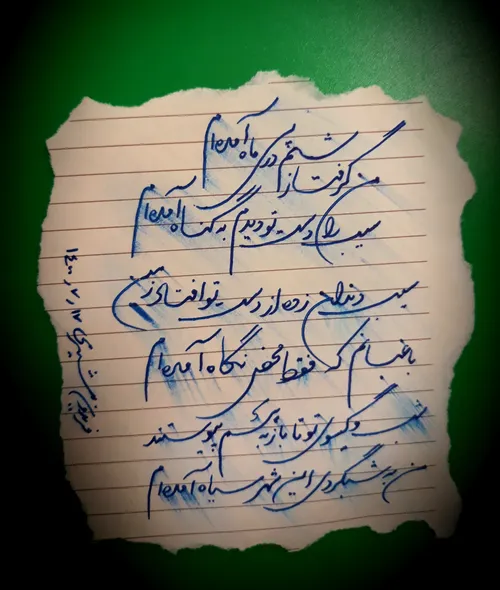 من گرفتار شبم در پی ماه آمده‌ام
سیب را دست تو دیدم به گناه آمده‌ام
سیب دندان زده از دست تو افتاد زمین
باغبانم که فقط محض نگاه آمده‌ام
شب و گیسوی تو تا باز به هم پیوستند
من به شبگردی این شهر سیاه آمده‌ام
۱۴۰۰,۷,۱۷